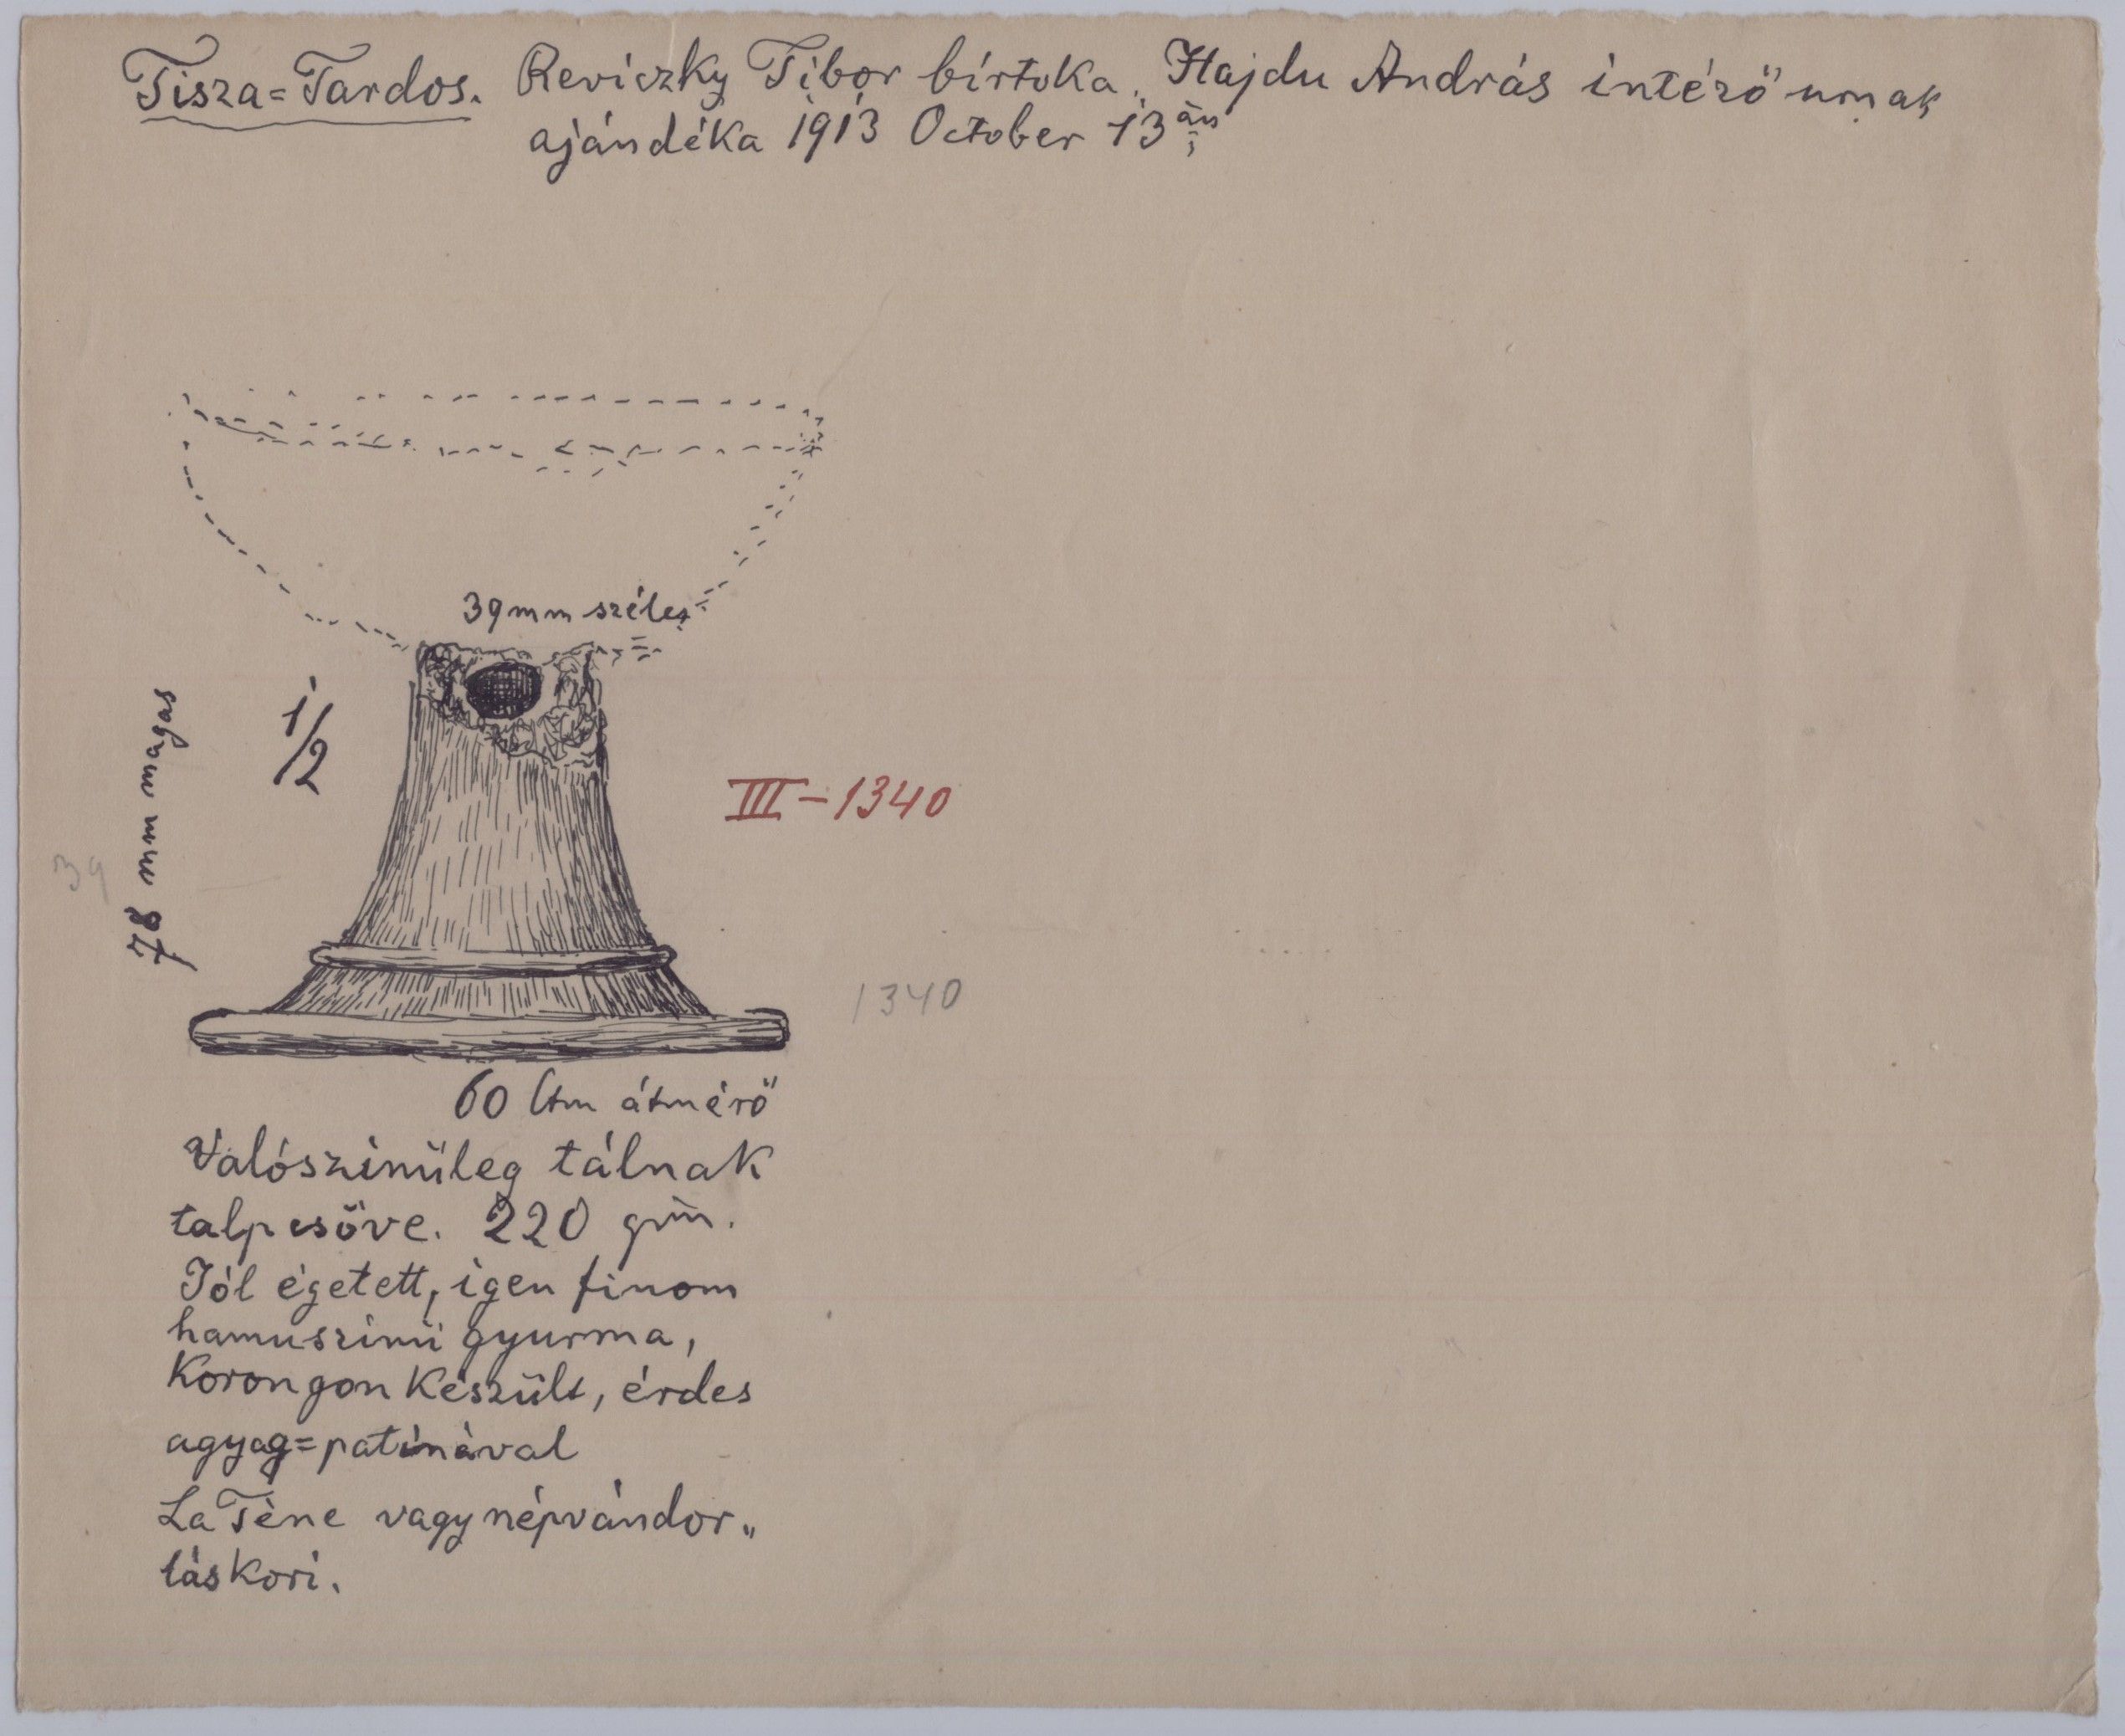 Tisza=Tardos. Reviczky Tibor birtoka. Hajdu András intéző urnak
ajándéka 1913 October 13án
39mm széles
1/2
78 mm magas
III-1340
39
1340
60 Ctm átmérő
Valószinüleg tálnak
talpcsöve. 220 gm.
Jól égetett, igen finom
hamuszinü gyurma,
Korongon Készült, érdes
agyag=patinával
La Tène vagy népvándor„
lás Kori.